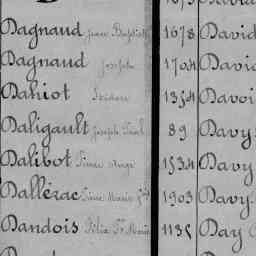 Dagnaud Jean Baptiste 1678 David
Dagnaud Joseph 1704 David
Dahiot Isidore 1354 Davoi
Daligault Joseph Paul 89 Davy
Dalibot Pierre Ange 1534 Davy
Dallérac Pierre Marie 1903 Davy
Dandois Félix Fr. Marie 1135 Day